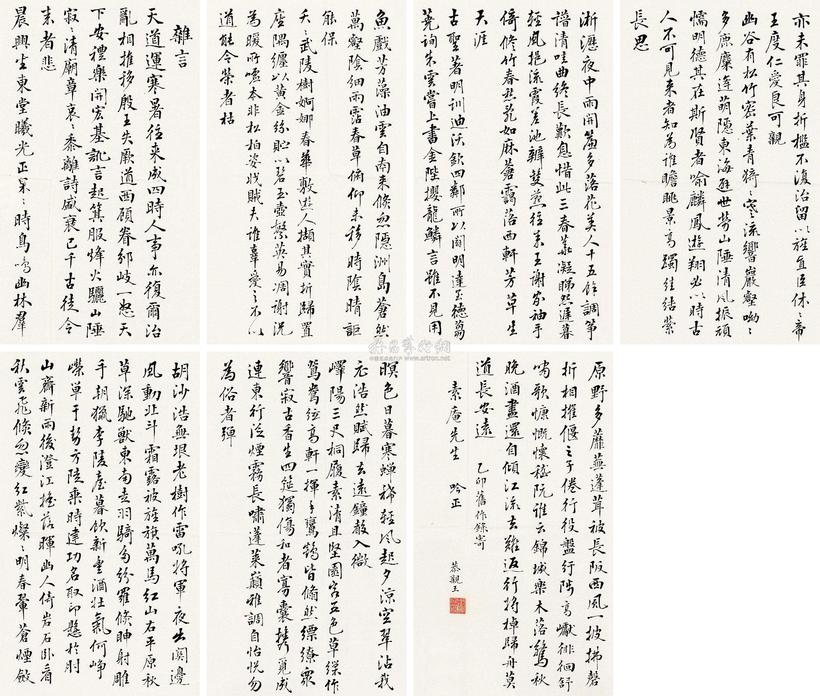 雜言
天道運寒暑往來成四時人事亦復爾治
亂相推移殷王失厥道西顧眷邠岐一怒天
下安禮樂開宏基訛言起箕服烽火驪山陲
寂寂清廟章哀哀黍離詩盛衰已千古徒令
來者悲
晨興坐東堂曦光正杲杲時鳥鳴幽林群
魚戲芳藻油雲自南來倏忽隱洲島蒼然
萬壑陰細雨霑春草俯仰未移時陰晴詎
能保
夭夭武陵樹婀娜春華敷遊人擷其實折歸置
座隅纏以黃金絲貯以碧玉壺繁英易凋謝況
為暖所噓本非松柏姿戕賊夫誰辜愛之不以
道能令榮者枯
淅瀝夜中雨開簾多落花美人十五餘調箏
譜清哇曲終長歎息惜此三春華凝睇愁遲暮
輕風挹流霞差池雙燕往來王謝家袖手
倚脩竹春愁亂如麻蒼靄落西軒芳草生
天涯
古聖著明訓迪沃欽四鄰所以闢明達至德蒭
蕘詢朱雲嘗上書金陛攖龍鱗言雖不見用
亦未罪其身折檻不復治留以旌直臣休休帝
王度仁愛良可觀
幽谷有松竹密葉青猗猗寒流響巖壑呦呦
多麀麋逢萌隱東海遯世勞山陲清風振頑
懦明德其在斯賢者喻麟鳳遊翔必以時古
人不可見來者知為誰瞻眺景高躅結縈
長思
胡沙浩無垠老樹作雷吼將軍夜出關邊
風動北斗霜露被旌旗萬馬紅山右平原秋
草深馳獸東南走羽騎多紛羅倏眒射雕
手朝獵李陵臺暮飲新豐酒壯氣何崢
嶸單于勢方乘時建功名取印懸於肘
山齋新雨後澄江搖落暉幽人倚岩石卧看
秋雲飛倏忽變紅紫燦燦明春翬蒼煙斂
暝色日暮寒蟬稀輕風起夕涼空翠沾我
衣浩然賦歸去遠鐘散入微
嶧陽三尺桐履素清且堅園客五色草繅作
鴛鴦絃高軒一揮手鸞鶴皆翛然縹緲眾
響寂古香生四筵獨傷和者寡囊琴覓成
連東行泛煙霧長嘯蓬萊巔雅調自怡悅勿
為俗者彈
原野多蘼蕪蓬茸被長阪西風一披拂磬
折相摧偃之子倦行役盤紆陟高巘徘徊舒
嘯歌慷慨懷嵇阮誰云錦城樂木落驚秋
晚酒盡還自傾江流去難返行將棹歸舟莫
道長安遠 乙卯舊作錄寄
素庵先生 吟正
恭親王